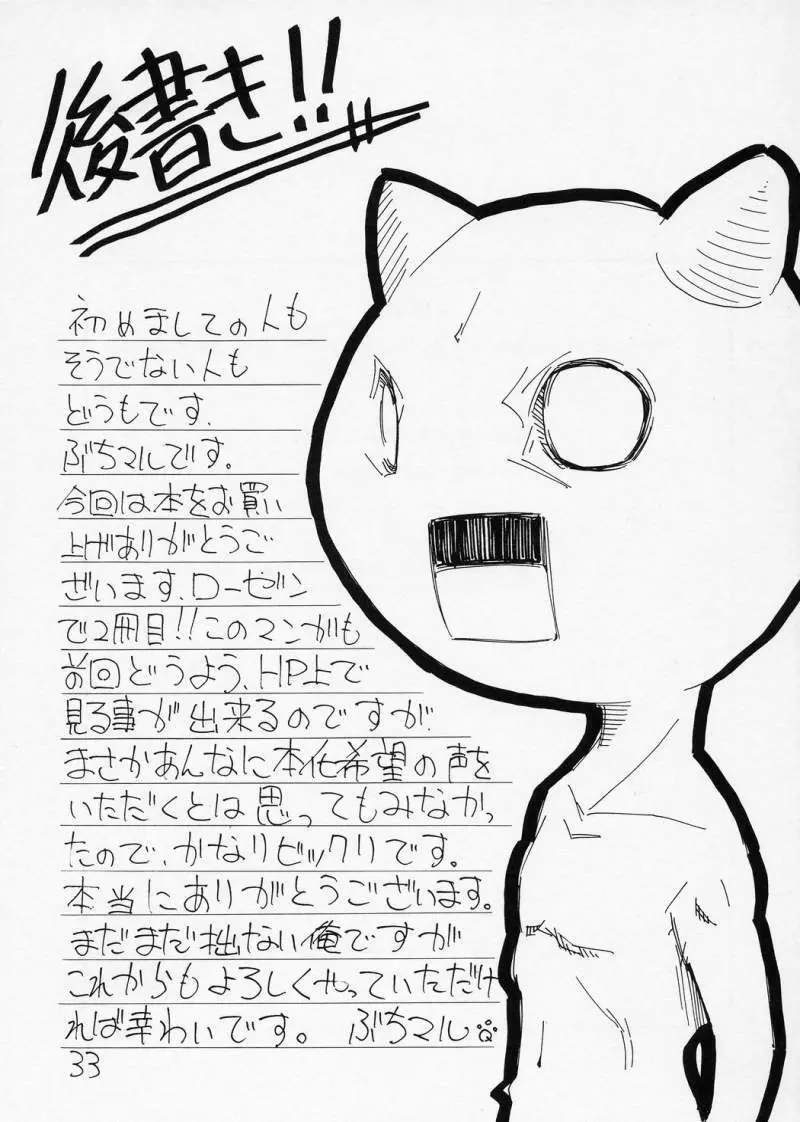 後書き!!
初めましての人も
そうでない人も
どうもです.
ぶちマルです。
今回は本をお買い
上げありがとうご
ざいます.ローゼン
で2冊目!!このマンガも
前回どうよう、HP上で
見る事が出来るのですが
まさかあんなに本化希望の声を
いただくとは思ってもみなかっ
たので、かなりビックリです。
本当にありがとうございます。
まだまだ拙ない俺ですが
これからもよろしくやっていただけ
れば幸わいです。 ぶちマル
33